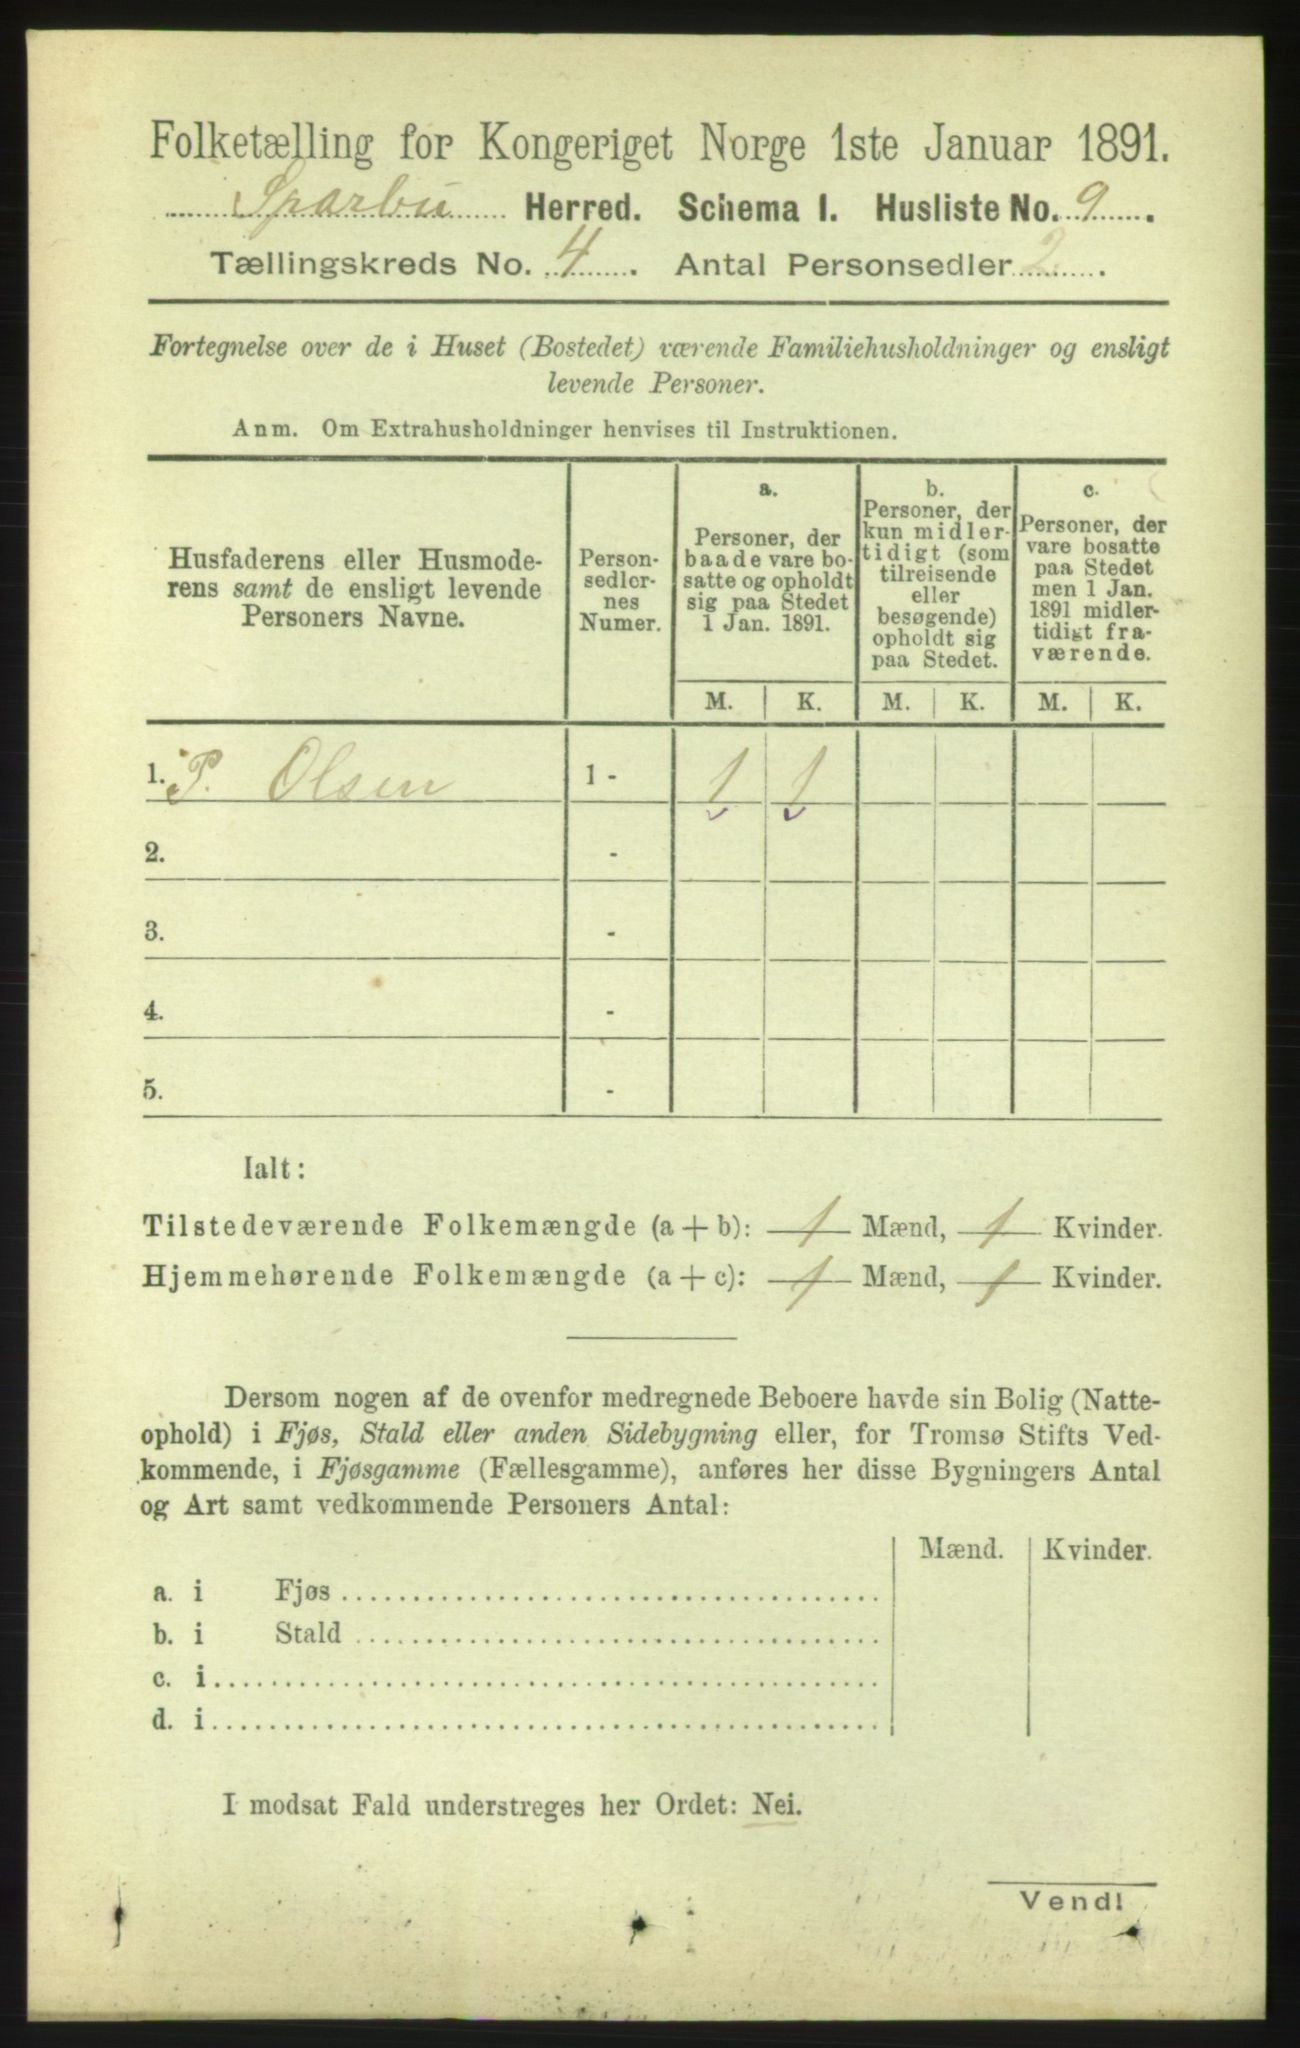 Folketælling for Kongeriget Norge 1ste Januar 1891.
Sparbu Herred. Schema I. Husliste No. 9.
Tællingskreds No. 4. Antal Personsedler 2.
Fortegnelse over de i Huset (Bostedet) værende Familiehusholdninger og ensligt
levende Personer.
Anm. Om Extrahusholdninger henvises til Instruktionen.
Husfaderens eller Husmode-
rens samt de ensligt levende
Personers Navne.
Person-
sedler-
nes
Numer.
a.
Personer, der
baade vare bo-
satte og opholdt
sig paa Stedet
1 Jan. 1891.
b.
Personer, der
kun midler-
tidigt (som
tilreisende
eller
besøgende)
opholdt sig
paa Stedet.
c.
Personer, der
vare bosatte
paa Stedet
men 1 Jan.
1891 midler-
tidigt fra-
værende.
M. K. M. K. M. K.
1. P. Olsen 1 - 1 1
2. -
3. -
4. -
5. -
Ialt:
Tilstedeværende Folkemængde (a + b): 1 Mænd, 1 Kvinder.
Hjemmehørende Folkemængde (a + c): 1 Mænd, 1 Kvinder.
Dersom nogen af de ovenfor medregnede Beboere havde sin Bolig (Natte-
ophold) i Fjøs, Stald eller anden Sidebygning eller, for Tromsø Stifts Ved-
kommende, i Fjøsgamme (Fællesgamme), anføres her disse Bygningers Antal
og Art samt vedkommende Personers Antal:
Mænd. Kvinder.
a. i Fjøs
b. i Stald
c. i
d. i
I modsat Fald understreges her Ordet: Nei.
Vend!